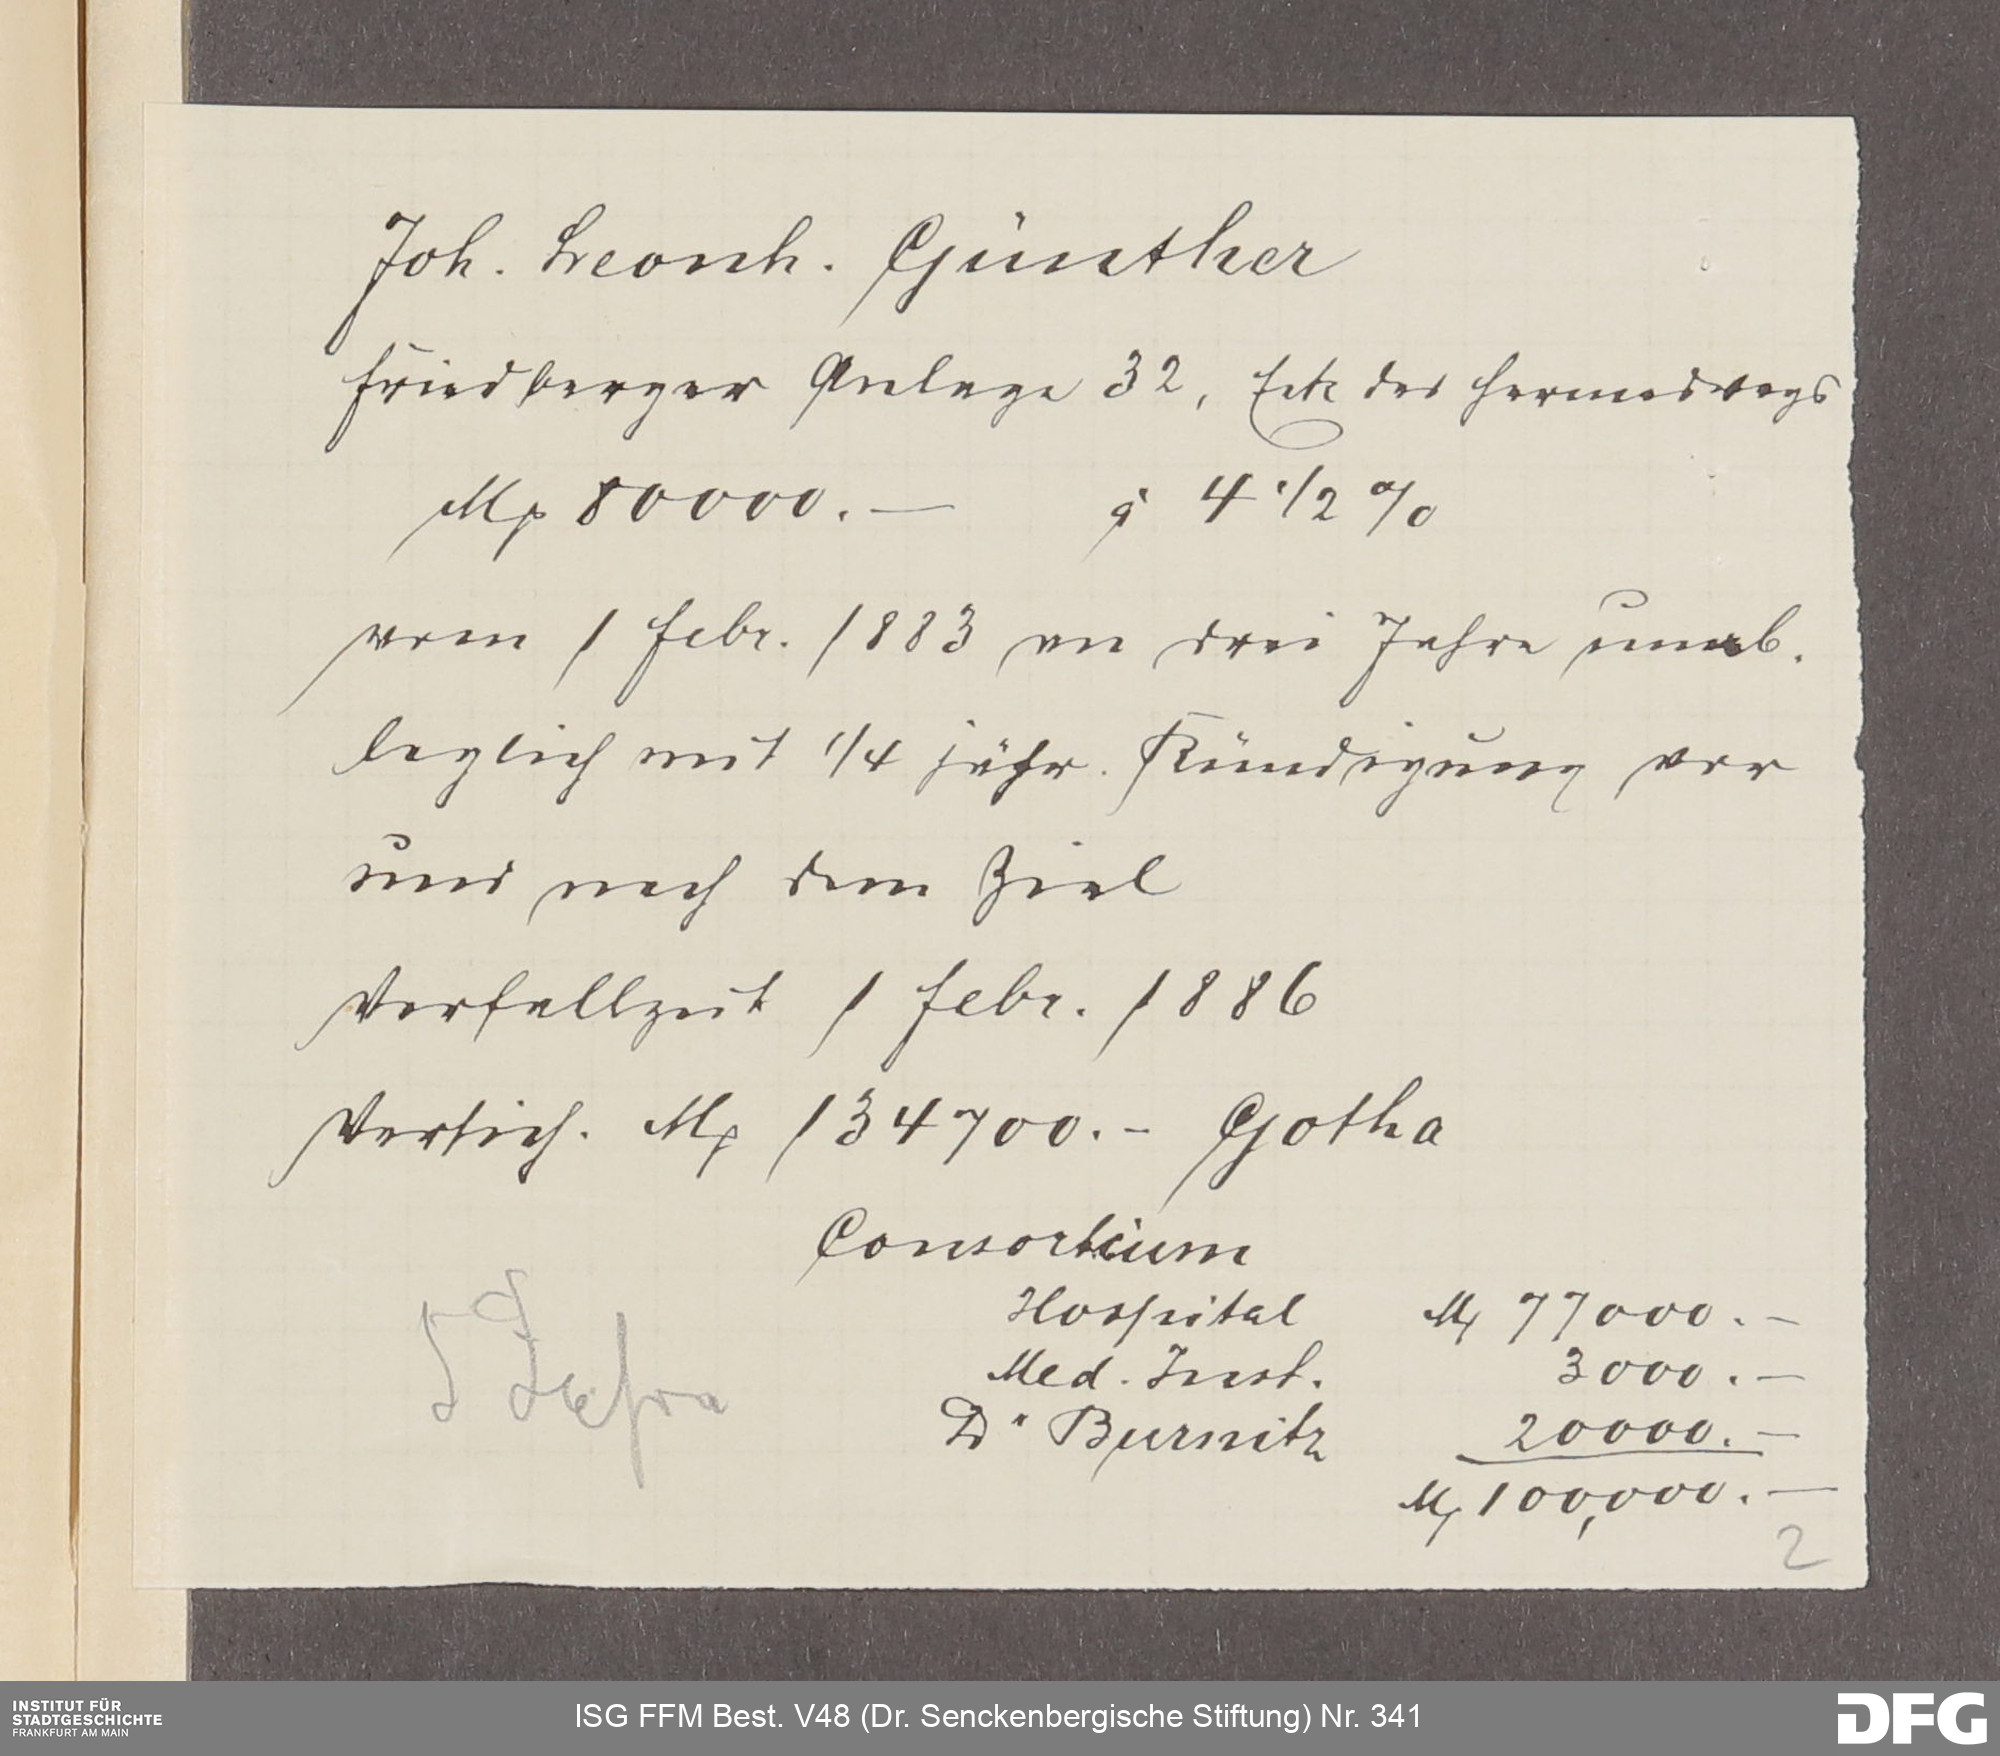 Joh. Leonh. Günther
Friedberger Anlage 32, Ecke des Hermesswegs
Mk 80000.— à 4 1/2 %
vom 1 Febr. 1883 an drei Jahre unab.
leglich mit 1/4 jähr. Kündigung vor
und nach dem Ziel
Verfallzeit 1 Febr. 1886
Versich. Mk 134700.- Gotha
Consortium
Hospital Mk 77000.-
Med. Inst. 3000.-
Dr Burnitz 20000.-
Mk 100,000.—
5 Jahre
2
INSTITUT FÜR
STADTGESCHICHTE
FRANKFURT AM MAIN
ISG FFM Best. V48 (Dr. Senckenbergische Stiftung) Nr. 341
DFG